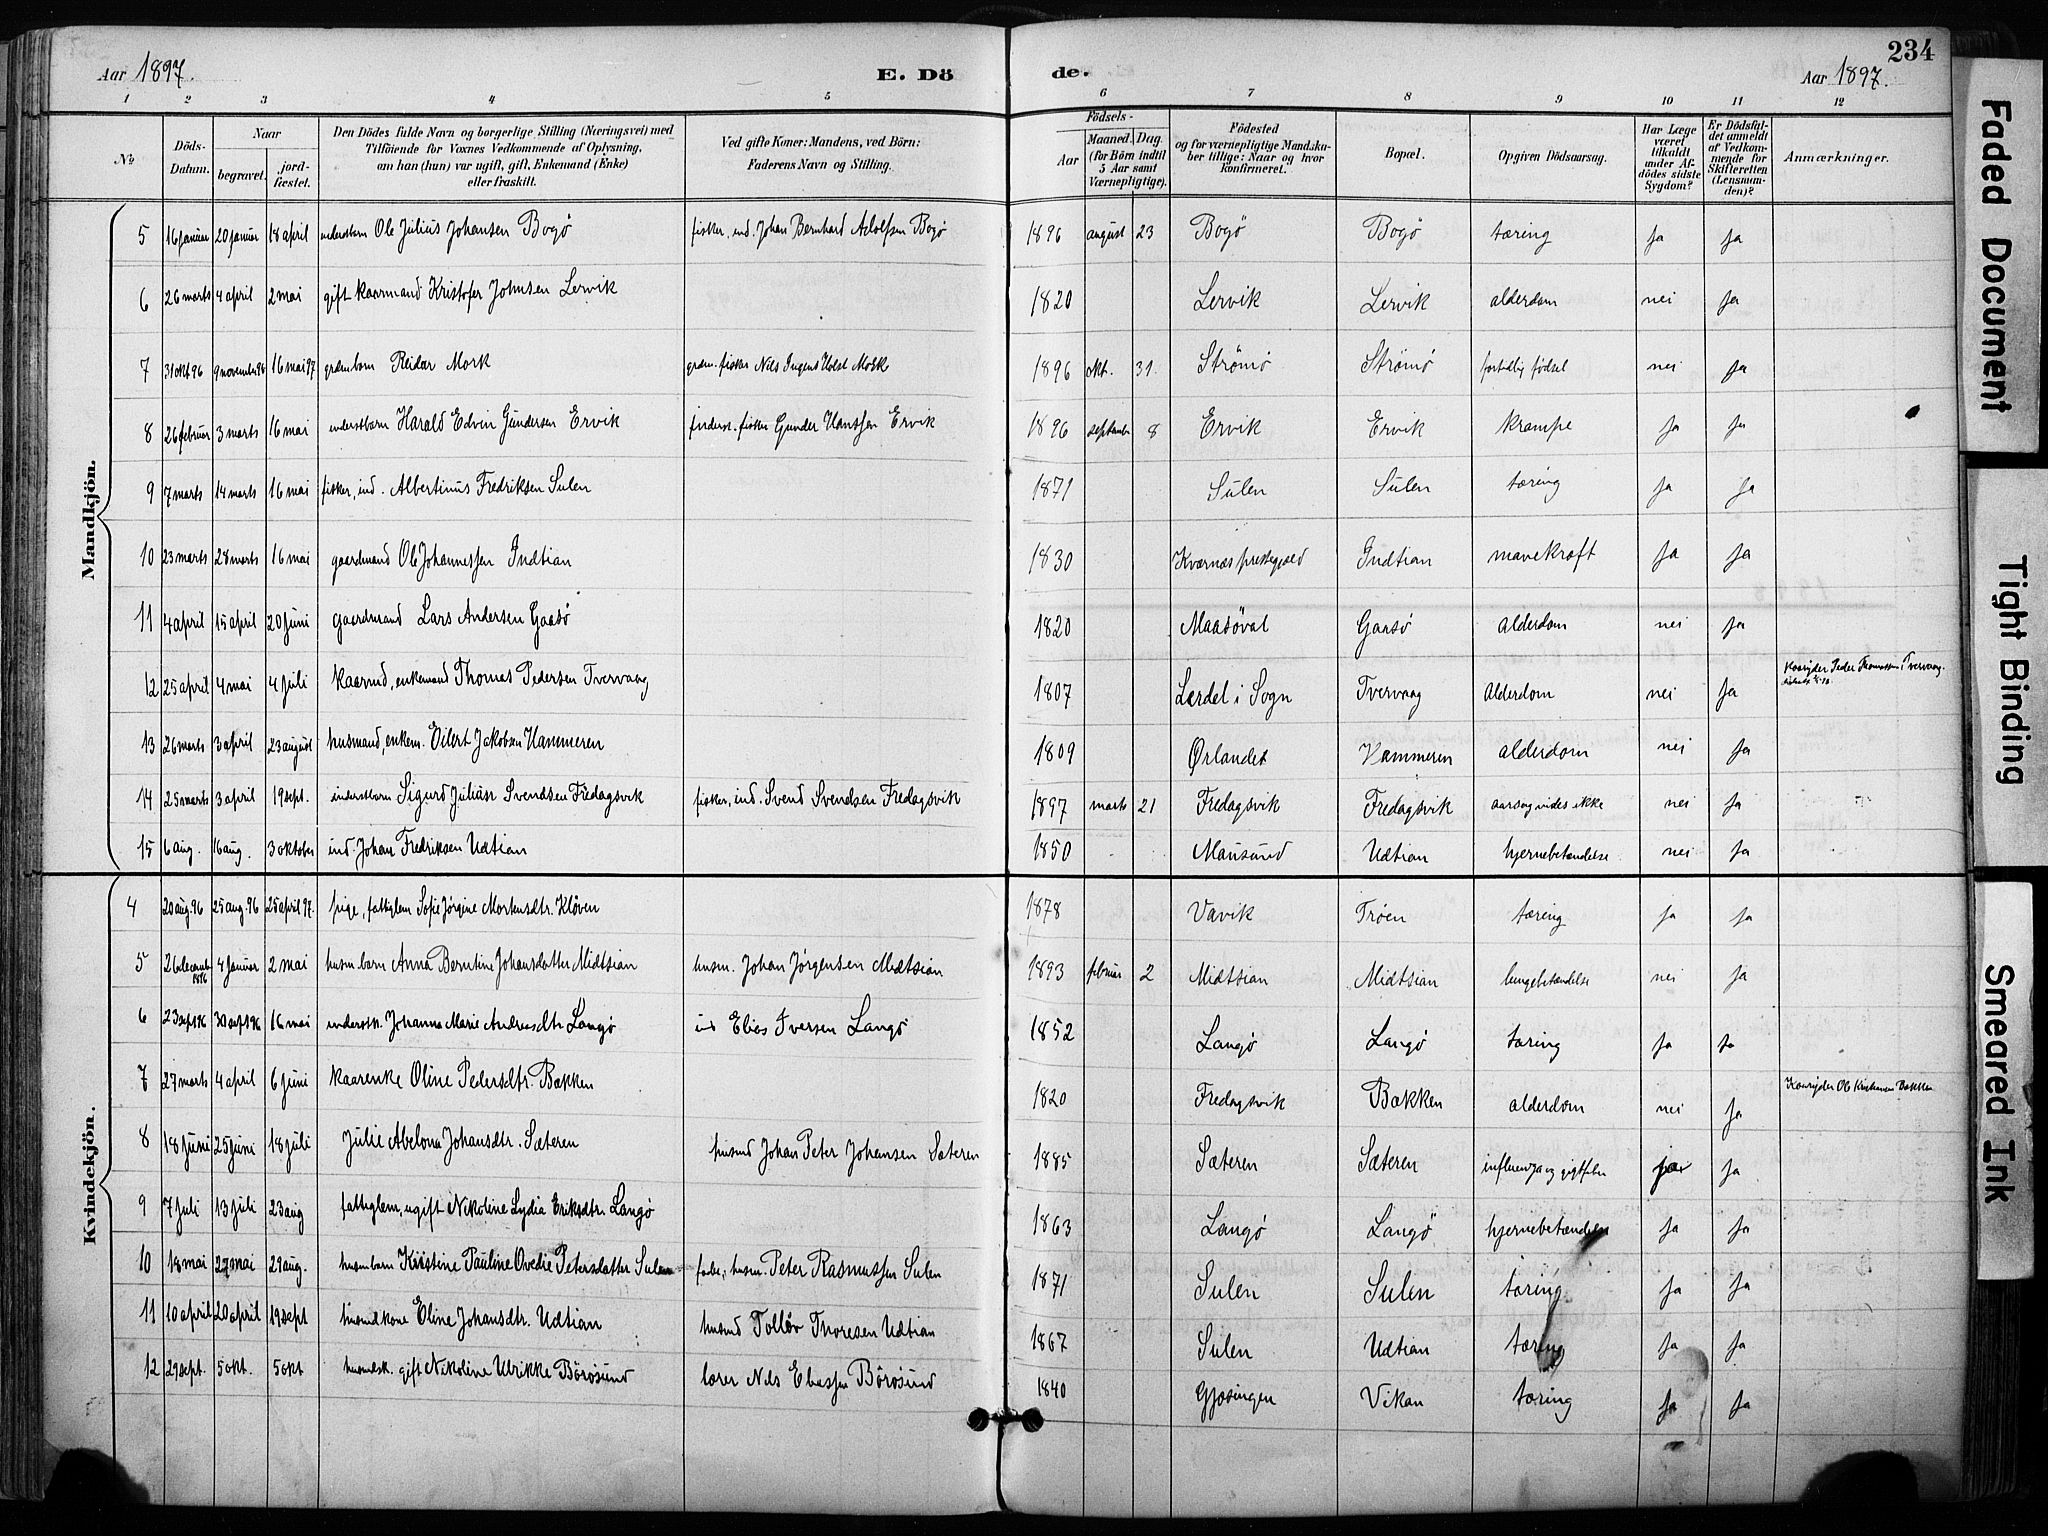 Aar 1897. E. Dö de. Aar 1897. 234
1 2 3 4 5 6 7 8 9 10 11 12
№ Döds-Datum. Naar begravet. jord-fæstet. Den Dödes fulde Navn og borgerlige Stilling (Næringsvei) med Tilföiende for Voxnes Vedkommende af Oplysning, om han (hun) var ugift, gift, Enkemand (Enke) eller fraskilt. Ved gifte Koner: Mandens, ved Börn: Faderens Navn og Stilling. Födsels- Aar Maaned. Dag. (for Börn indtil 5 Aar samt Værnepligtige). Födested og for værnepligtige Mandskaber tillige: Naar og hvor konfirmeret. Bopæl. Opgiven Dödsaarsag. Har Læge været tilkaldt under Afdödes sidste Sygdom? Er Dödsfaldet anmeldt af Vedkommende for Skifteretten (Lensmanden)? Anmærkninger.
Mandkjön.
5 16 januar 20 januar 18 april inderstbarn Ole Julius Johansen Bogø fisker, ind. Johan Bernhard Adolfsen Bogø 1896 august 23 Bogø Bogø tæring ja ja
6 26 marts 4 april 2 mai gift kaarmand Kristofer Johnsen Lervik 1820 Lervik Lervik alderdom nei ja
7 31 okt 96 9 november 96 16 mai 97 grdm barn Reidar Mork grdm. fisker Nils Ingent Holst Mork 1896 okt. 31. Strömö Strömö fortidlig födsel nei ja
8 26 februar 3 marts 16 mai inderstbarn Harald Edvin Gundersen Ervik inderst. fisker Gunder Hanssen Ervik 1896 september 8 Ervik Ervik krampe ja ja
9 7 marts 14 marts 16 mai fisker, ind. Albertinus Fredriksen Sulen 1871 Sulen Sulen tæring ja ja
10 23 marts 28 marts 16 mai gaardmand Ole Johannessen Indtian 1830 Kværnæs prestegjæld Indtian mavekræft ja ja
11 4 april 15 april 20 juni gaardmand Lars Andersen Gaasø 1820 Maasöval Gaasø alderdom nei ja
12 25 april 4 mai 4 juli kaarmd, enkemand Thomas Pedersen Tvervaag 1807 Lærdal i Sogn Tvervaag alderdom nei ja Kaaryder Peder Thomassen i Tvervaag.
13 26 marts 3 april 23 august husmand, enkem. Eilert Jakobsen Hammeren 1809 Ørlandet Hammeren alderdom nei ja
14 25 marts 3 april 19 sept. inderstbarn Sigurd Julian Svendsen Fredagsvik fisker, ind. Svend Svendsen Fredagsvik 1897 marts 21 Fredagsvik Fredagsvik aarsag vides ikke nei ja
15 6 aug. 16 aug. 3 oktober ind. Johan Fredriksen Udtian 1850 Mausund Udtian hjernebetændelse nei ja
Kvindekjön.
4 20 aug. 96 25 aug. 96 25 april 97. pige, fattiglem Sofie Jørgine Mortensdtr. Kløven 1878 Vavik Trøen tæring ja ja
5 26 decemb 1896 4 januar 2 mai husm. barn Anna Berntine Johansdatter Midtsian husm. Johan Jørgensen Midtsian 1893 februar 2 Midtsian Midtsian lungebetændelse nei ja
6 23 sept 96 30 sept 96 16 mai inderstk. Johanna Marie Andreasdtr Langø ind Elias Iversen Langø 1852 Langø Langø tæring ja ja
7 27 marts 4 april 6 juni kaarenke Oline Pedersdtr. Bakken 1820 Fredagsvik Bakken alderdom nei ja Kaaryder Ole Kristiansen Bakken
8 18 juni 25 juni 18 juli Julie Abelona Johansdtr. Sæteren husmd Johan Peter Johansen Sæteren 1885 Sæteren Sæteren influenza og gigtfeber ja ja
9 7 juli 13 juli 23 aug fattiglem, ugift Nikoline Lydia Eriksdtr. Langø 1863 Langø Langø hjernebetændelse ja ja
10 18 mai 27 mai 29 aug. husm barn Kristine Pauline Ovedie Petersdatter Sulen fader, husm. Peter Rasmussen Sulen 1871 Sulen Sulen tæring ja ja
11 10 april 20 april 19 sept husmdkone Eline Johansdtr. Udtian husmd Tolløv Thoresen Udtian 1867 Sulen Udtian tæring ja ja
12 29 sept. 5 okt. 5 okt husmdsk. gift Nikoline Ulrikke Börösund lærer Nils Eliassen Börösund 1840 Gjæsingen Vikan tæring ja ja
Faded Document
Tight Binding
Smeared Ink